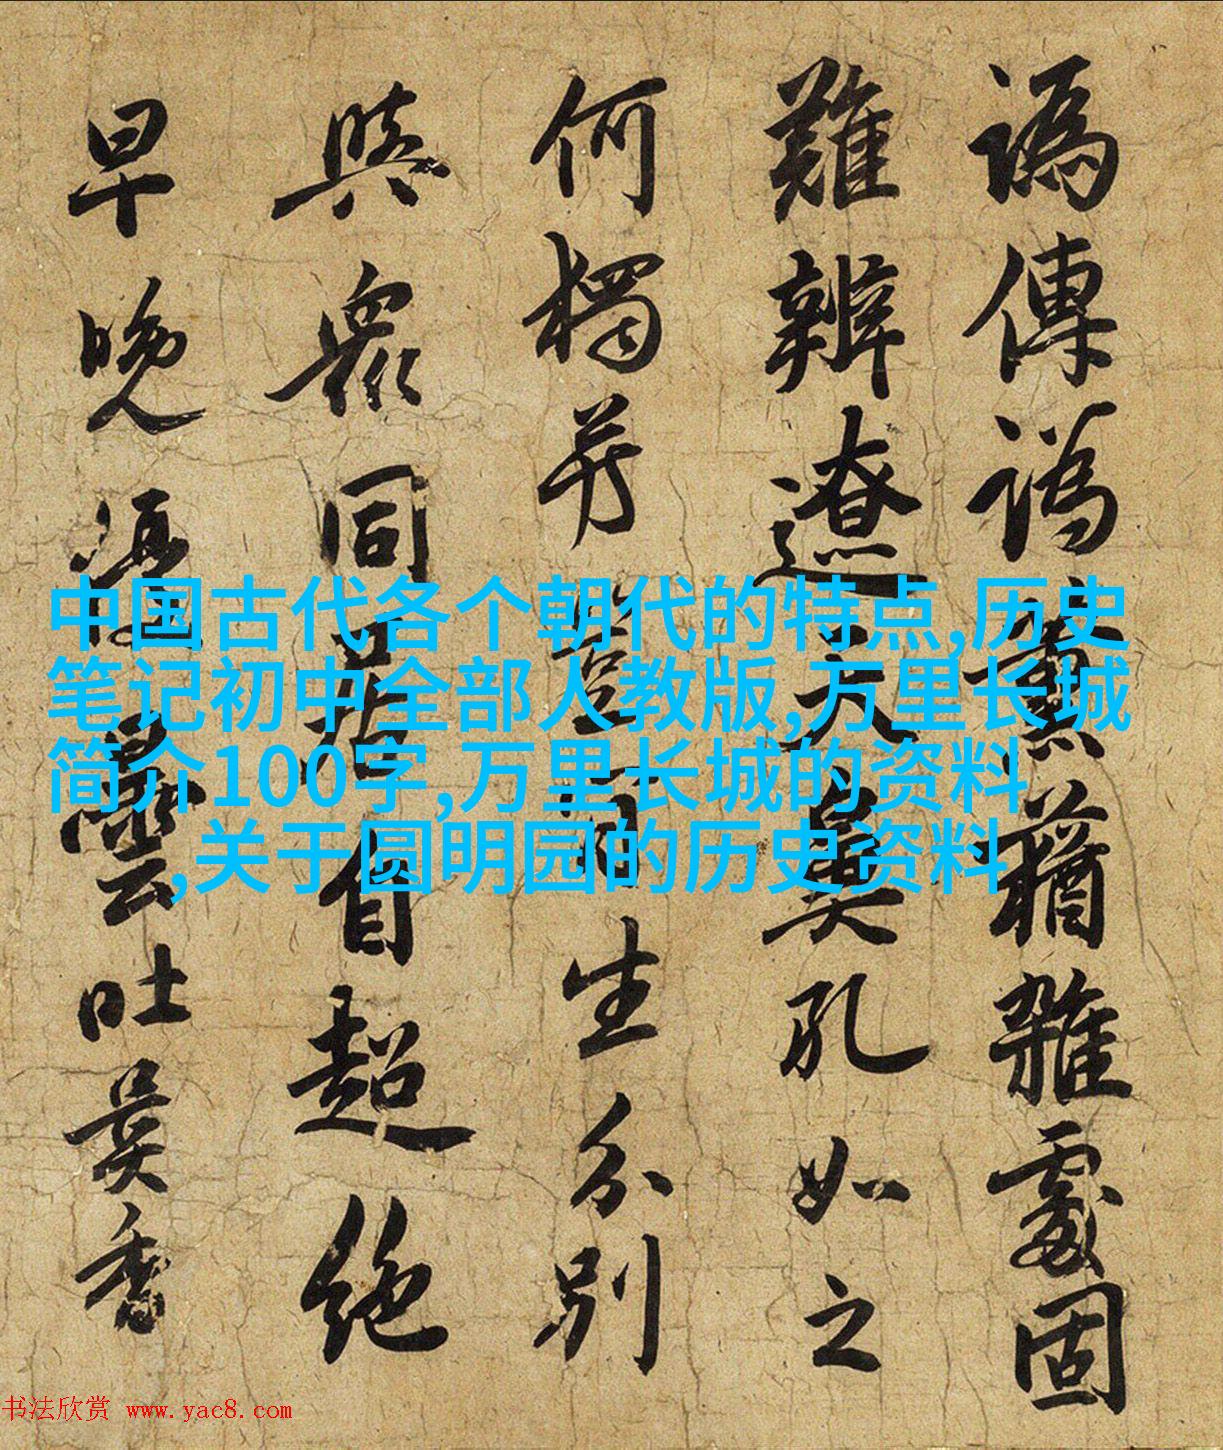 中国古代各个朝代的特点,历史
笔记初中全部人教版,万里长城
简介100字,万里长城的资料
,关于圆明园的历史资料
譌傳譌薰蕕雜處固
難辨遼天鼻孔如之
何獨生分別
與衆同居自超絶
早晚曇吐異香
书法欣赏 www.yac8.com